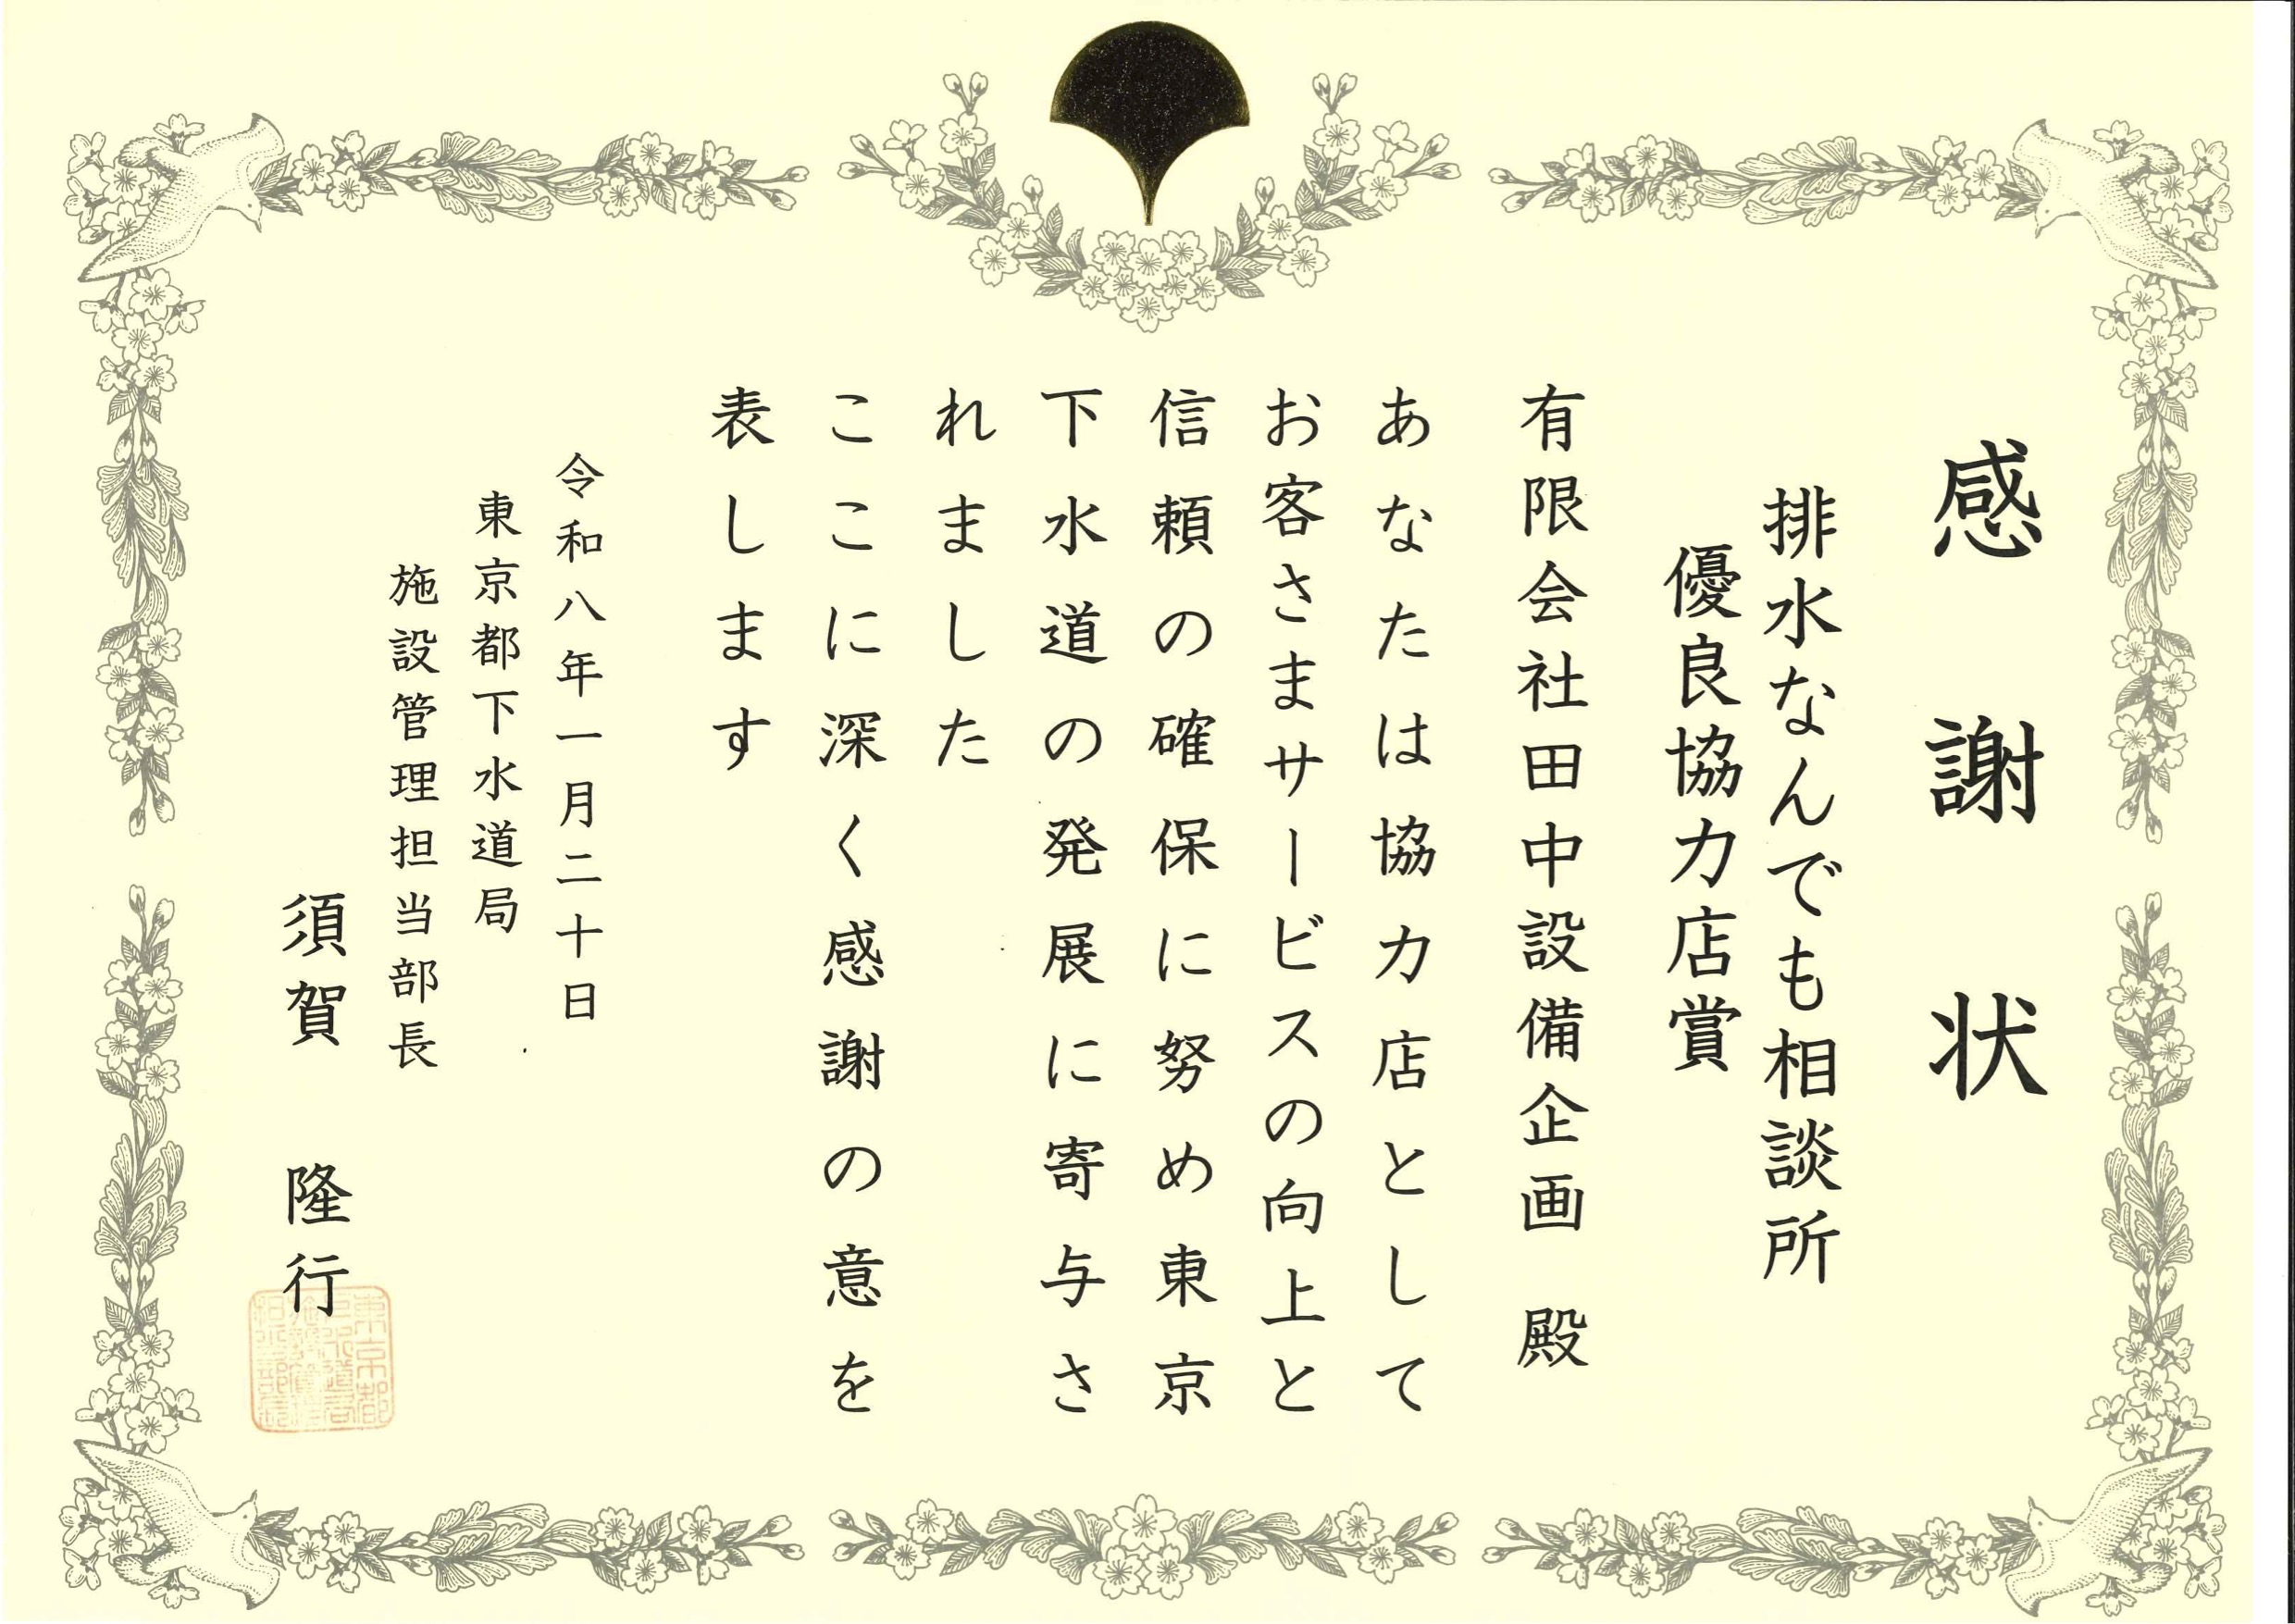 感謝状
排水なんでも相談所
優良協力店賞
有限会社田中設備企画 殿
あなたは協力店として
お客さまサービスの向上と
信頼の確保に努め東京
下水道の発展に寄与さ
れました
ここに深く感謝の意を
表します
令和八年一月二十日
東京都下水道局
施設管理担当部長
須賀 隆行
東京都
下水道局